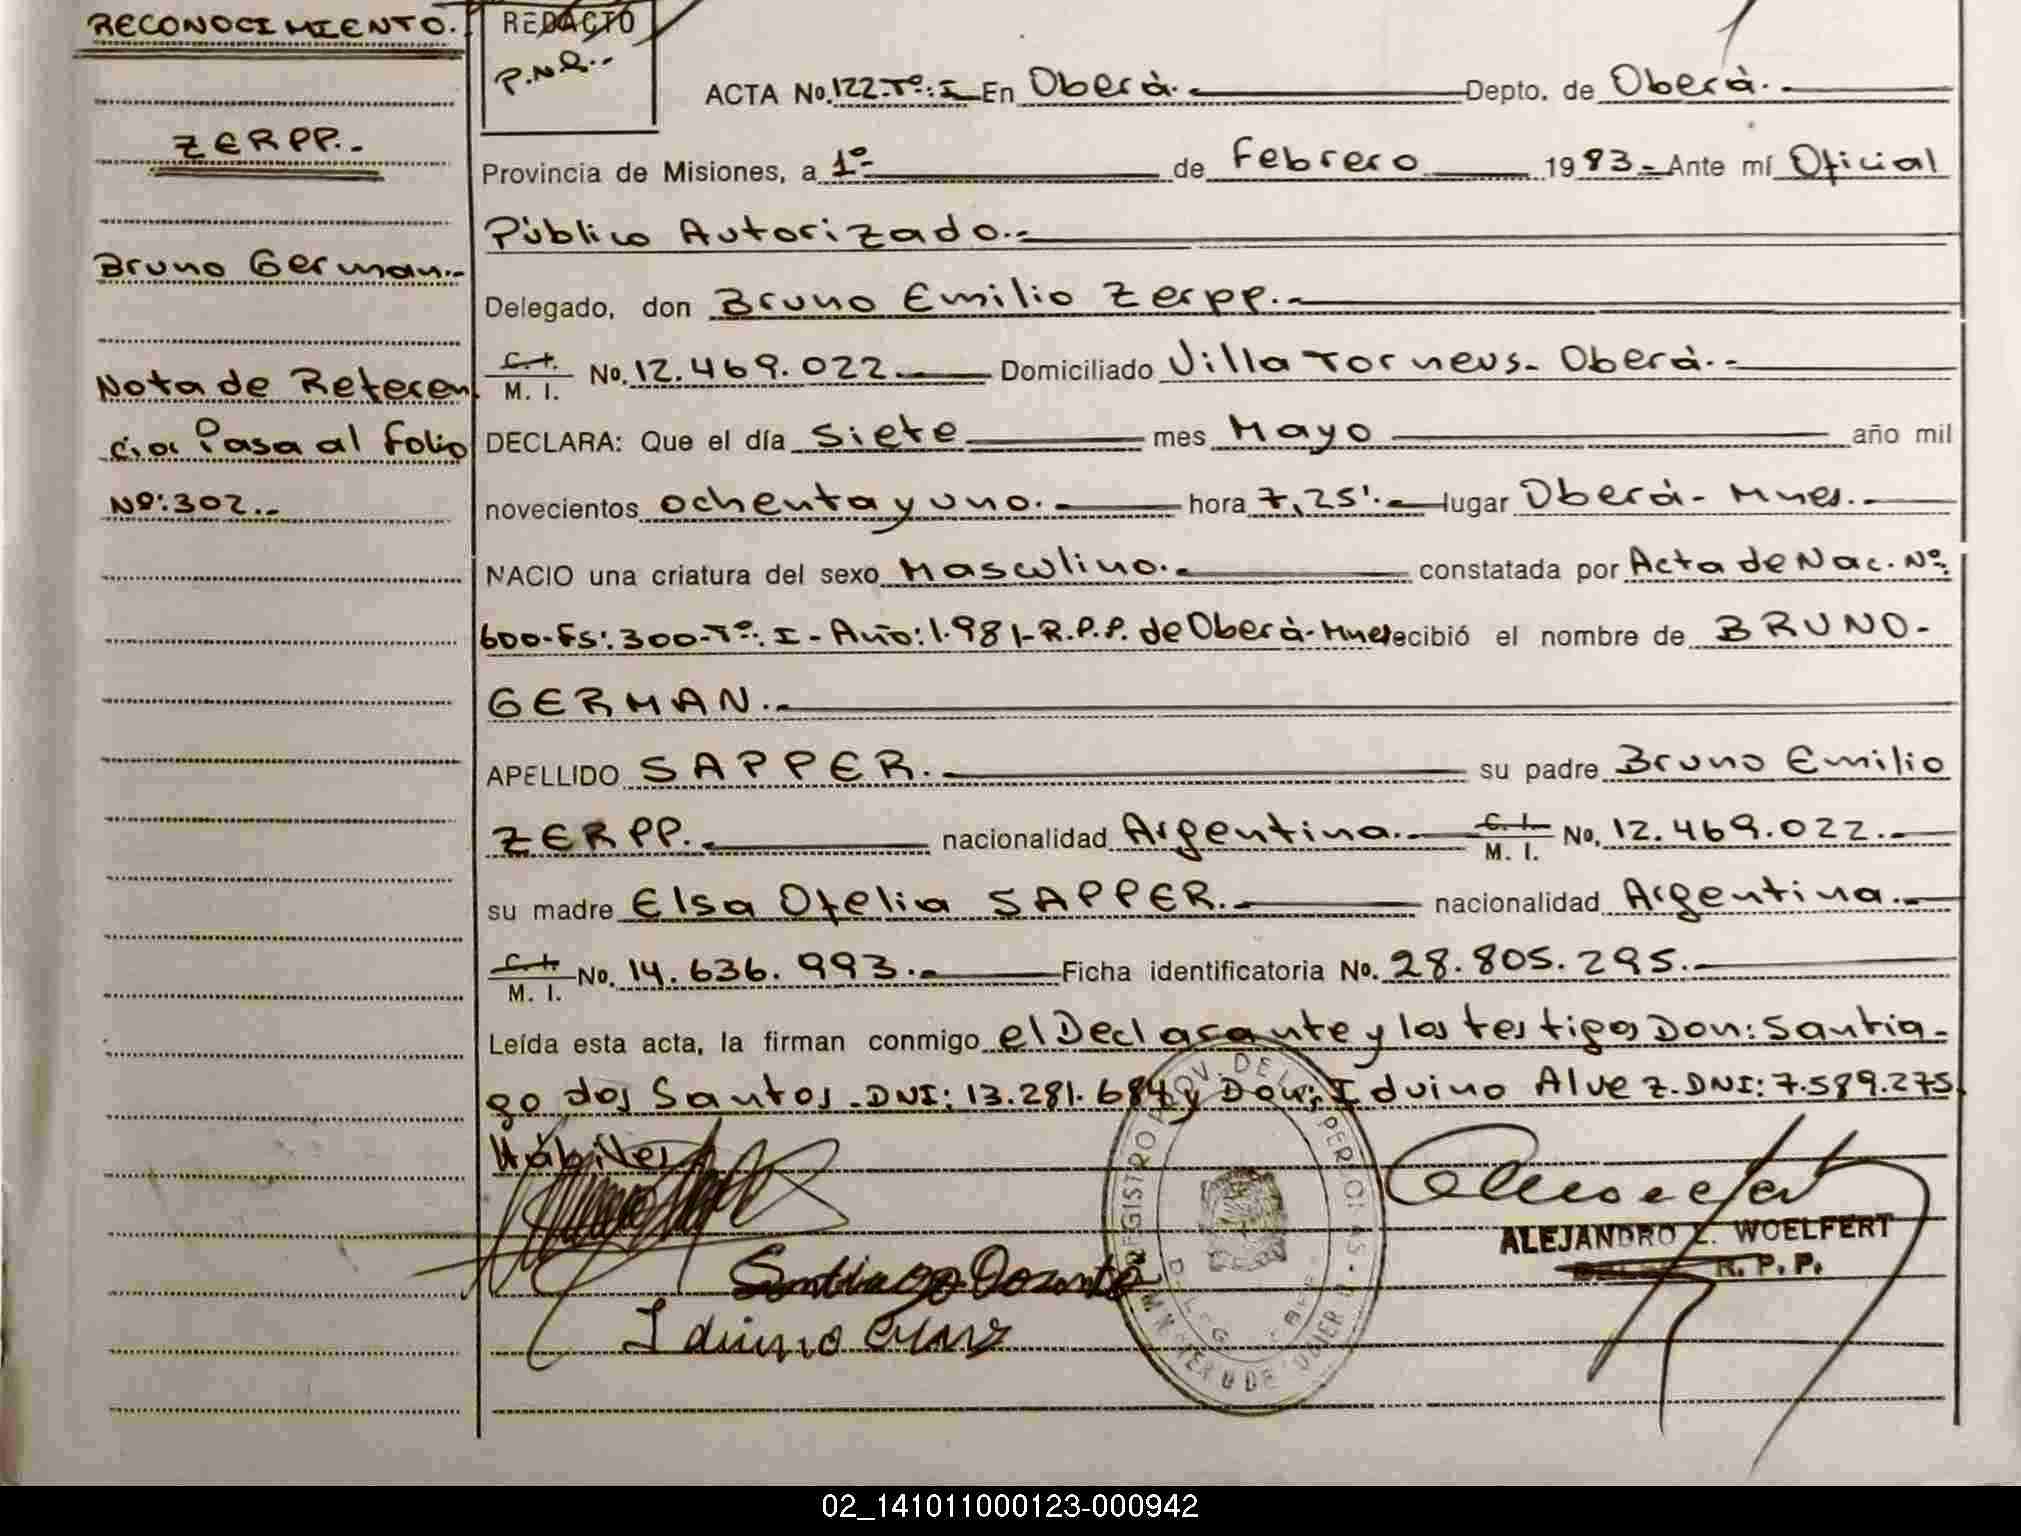 RECONOCIMIENTO.
ZERPP.-
Bruno German.-
Nota de Referen
cia Pasa al Folio
Nº:302.-
REDACTO
P.N.R..
ACTA No. 122-Tº:I En Oberá. Depto. de Oberá.
Provincia de Misiones, a 1º de Febrero 1983.- Ante mí Oficial
Público Autorizado.-
Delegado, don Bruno Emilio Zerpp.-
C. I. M. I. No. 12.469.022 Domiciliado Villa Torneus- Oberá.-
DECLARA: Que el día Siete mes Mayo año mil
novecientos ochenta y uno. hora 7,25'.- lugar Oberá- Mnes.-
NACIO una criatura del sexo Masculino. constatada por Acta de Nac. Nº:
600-Fs:300-Tº: I - Año:1.981-R.P.P. de Oberá-Mnes recibió el nombre de BRUNO-
GERMAN.-
APELLIDO SAPPER. su padre Bruno Emilio
ZERPP. nacionalidad Argentina. C. I. M. I. No. 12.469.022.-
su madre Elsa Ofelia SAPPER. nacionalidad Argentina.-
C. I. M. I. No. 14.636.993. Ficha identificatoria No. 28.805.295.-
Leída esta acta, la firman conmigo el Declarante y los testigos Don: Santia-
go dos Santos -DNI: 13.281.684 y Don: Iduino Alvez. DNI: 7.589.275
Hábiles
ALEJANDRO L. WOELFERT
R. P. P.
02_141011000123-000942